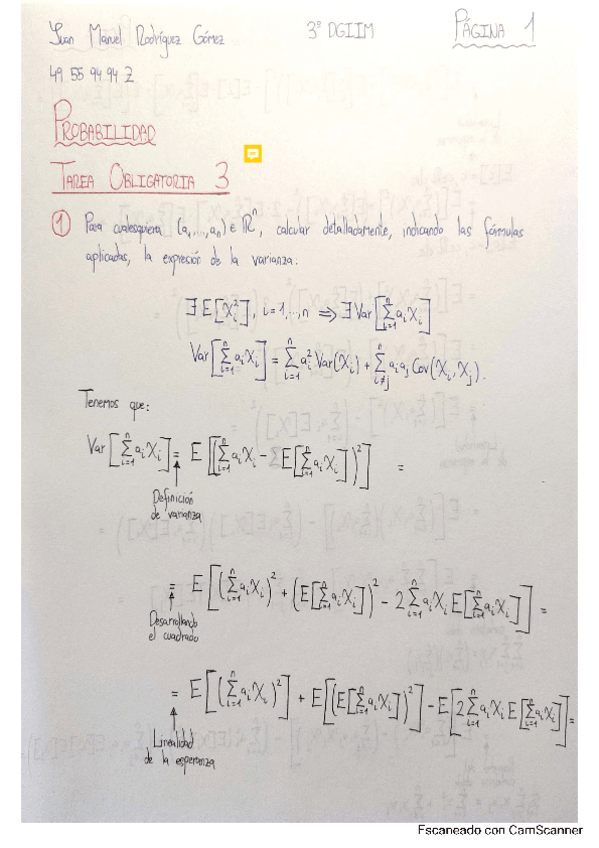 Juan Manuel Rodríguez Gómez 3º DGIIM PÁGINA 1
49 55 94 94 Z
PROBABILIDAD
TAREA OBLIGATORIA 3
① Para cualesquiera (a₁,...,aₙ) ∈ ℝⁿ, calcular detalladamente, indicando las fórmulas
aplicadas, la expresión de la varianza:
∃ E[X_i²], i=1,...,n ⟹ ∃ Var[∑_{i=1}^n a_i X_i]
Var[∑_{i=1}^n a_i X_i] = ∑_{i=1}^n a_i² Var(X_i) + ∑_{i≠j}^n a_i a_j Cov(X_i, X_j).
Tenemos que:
Var[∑_{i=1}^n a_i X_i] = E[(∑_{i=1}^n a_i X_i - E[∑_{i=1}^n a_i X_i])²] =
Definición
de varianza
= E[(∑_{i=1}^n a_i X_i)² + (E[∑_{i=1}^n a_i X_i])² - 2 ∑_{i=1}^n a_i X_i E[∑_{i=1}^n a_i X_i]] =
Desarrollando
el cuadrado
= E[(∑_{i=1}^n a_i X_i)²] + E[(E[∑_{i=1}^n a_i X_i])²] - E[2 ∑_{i=1}^n a_i X_i E[∑_{i=1}^n a_i X_i]] =
Linealidad
de la esperanza
Escaneado con CamScanner